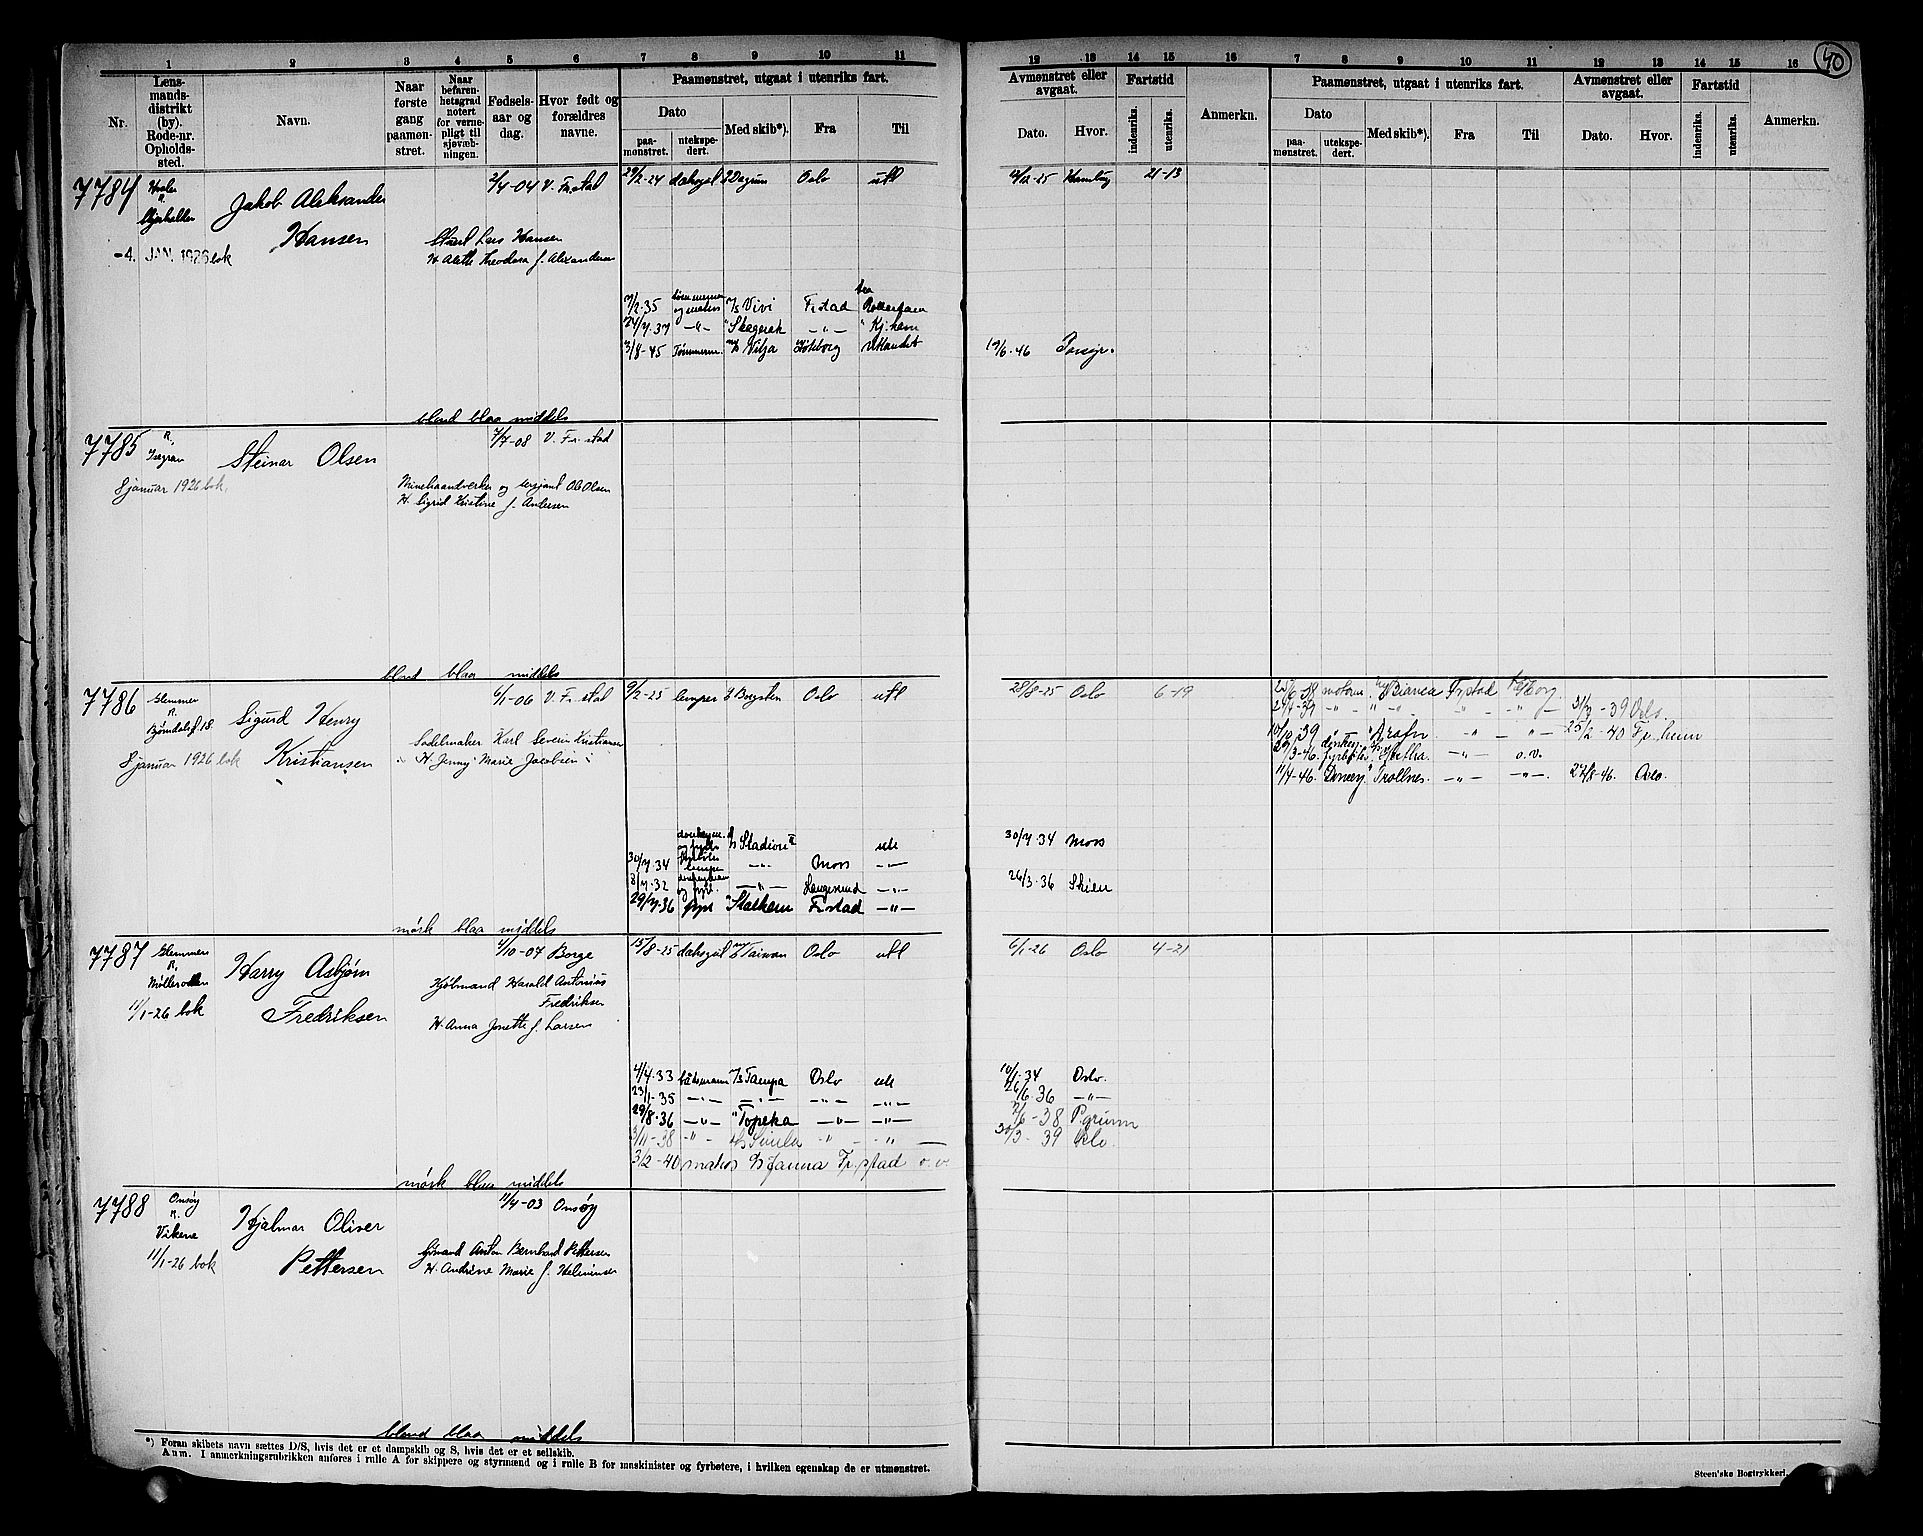 40
1 2 3 4 5 6 7 8 9 10 11
12 13 14 15 16 7 8 9 10 11 12 13 14 15 16
Nr.
Lens-
mands-
distrikt
(by).
Rode-nr.
Opholds-
sted.
Navn.
Naar
første
gang
paamøn-
stret.
Naar
befaren-
hetsgrad
notert
for verne-
pligt til
sjøvæb-
ningen.
Fødsels-
aar og
dag.
Hvor født og
forældres
navne.
Paamønstret, utgaat i utenriks fart.
Dato
paa-
mønstret.
utekspe-
dert.
Med skib*).
Fra
Til
Avmønstret eller
avgaat.
Dato.
Hvor.
Fartstid
indenriks.
utenriks.
Anmerkn.
Paamønstret, utgaat i utenriks fart.
Dato
paa-
mønstret.
utekspe-
dert.
Med skib*).
Fra
Til
Avmønstret eller
avgaat.
Dato.
Hvor.
Fartstid
indenriks.
utenriks.
Anmerkn.
7784
Jakob Aleksander
Hansen
-4. JAN. 1926 bok
2/4-04 V. Fr.stad
Lars Hansen
H. Aleth. Theodora f. Alexandersen
29/2-24 Dagrun Oslo utl
12-25 Hamburg 21-13
7/2-35 og matros M/S Vivi Fr.stad Rotterdam
24/7-37 -"- " Skagerak -"- " Kj.havn
3/8-45 Tømmerm. Vilja Göteborg Utlandet
19/6-46
blond blaa middels
7785
R.
Isegran
Steinar Olsen
8 januar 1926 bok.
7/7-08 V. Fr.stad
Minehaandverker og sersjant Ole Olsen
H. Sigrid Kristine f. Andersen
blond blaa middels
7786
Glemmen
R.
Bjørndalsf 18
Sigurd Henry
Kristiansen
8 januar 1926 bok
6/1-06 V. Fr.stad
Sadelmaker Karl Severin Kristiansen
H. Jenny Marie Jacobsen
9/2-25 lemper Borgsten Oslo utl
28/8-25 Oslo 6-19
25/6-38 motorm Bianca Fr.stad
29/7-39 " " - " - 31/7-39 Oslo
10/10 39 donkey Drafn -"- -"- 25/2-40 Fr.havn
3-46 fyrbøter -"- o.v.
11/4-46 Donkey. " Trollnes. -"- -"- 27/8-46. Oslo.
donkeym. Stadion II utl
30/7-34 Moss
30/7-34 -"- Moss -"-
8/7-32 -"- Langesund -"-
26/3-36 Skien
29/7-36 fyrb Stalheim Fr.stad -"-
mørk blaa middels
7787
Glemmen
R.
Harry Asbjørn
Fredriksen
11/1-26 bok
4/10-07 Borge
Kjølmand Harald Antonius
Fredriksen
H. Anna Jonette f. Larsen
15/8-25 Taiwan Oslo utl
6/1-26 Oslo 4-21
4/4-33 båtsmann M/S Tampa Oslo utl
10/1-34 Oslo.
23/1-35 -"- -"- -"- -"-
26/6-36 -"-
29/8-36 -"- " Topeka -"- -"-
2/6-38 P.grunn
3/11-38 -"- Simla -"- -"-
30/3-39 Oslo
3/2-40 matros Janna Fr.stad o.v.
mørk blaa middels
7788
Onsøy
R.
Vikene
Hjalmar Oliver
Pettersen
11/1-26 bok
11/4-03 Onsøy
Sjømand Anton Bernhard Pettersen
H. Andrine Marie f. Helminsen
blond blaa middels
*) Foran skibets navn sættes D/S, hvis det er et dampskib og S, hvis det er et seilskib.
Anm. I anmerkningsrubrikken anføres i rulle A for skippere og styrmænd og i rulle B for maskinister og fyrbøtere, i hvilken egenskap de er utmønstret.
Steen'ske Bogtrykkeri.